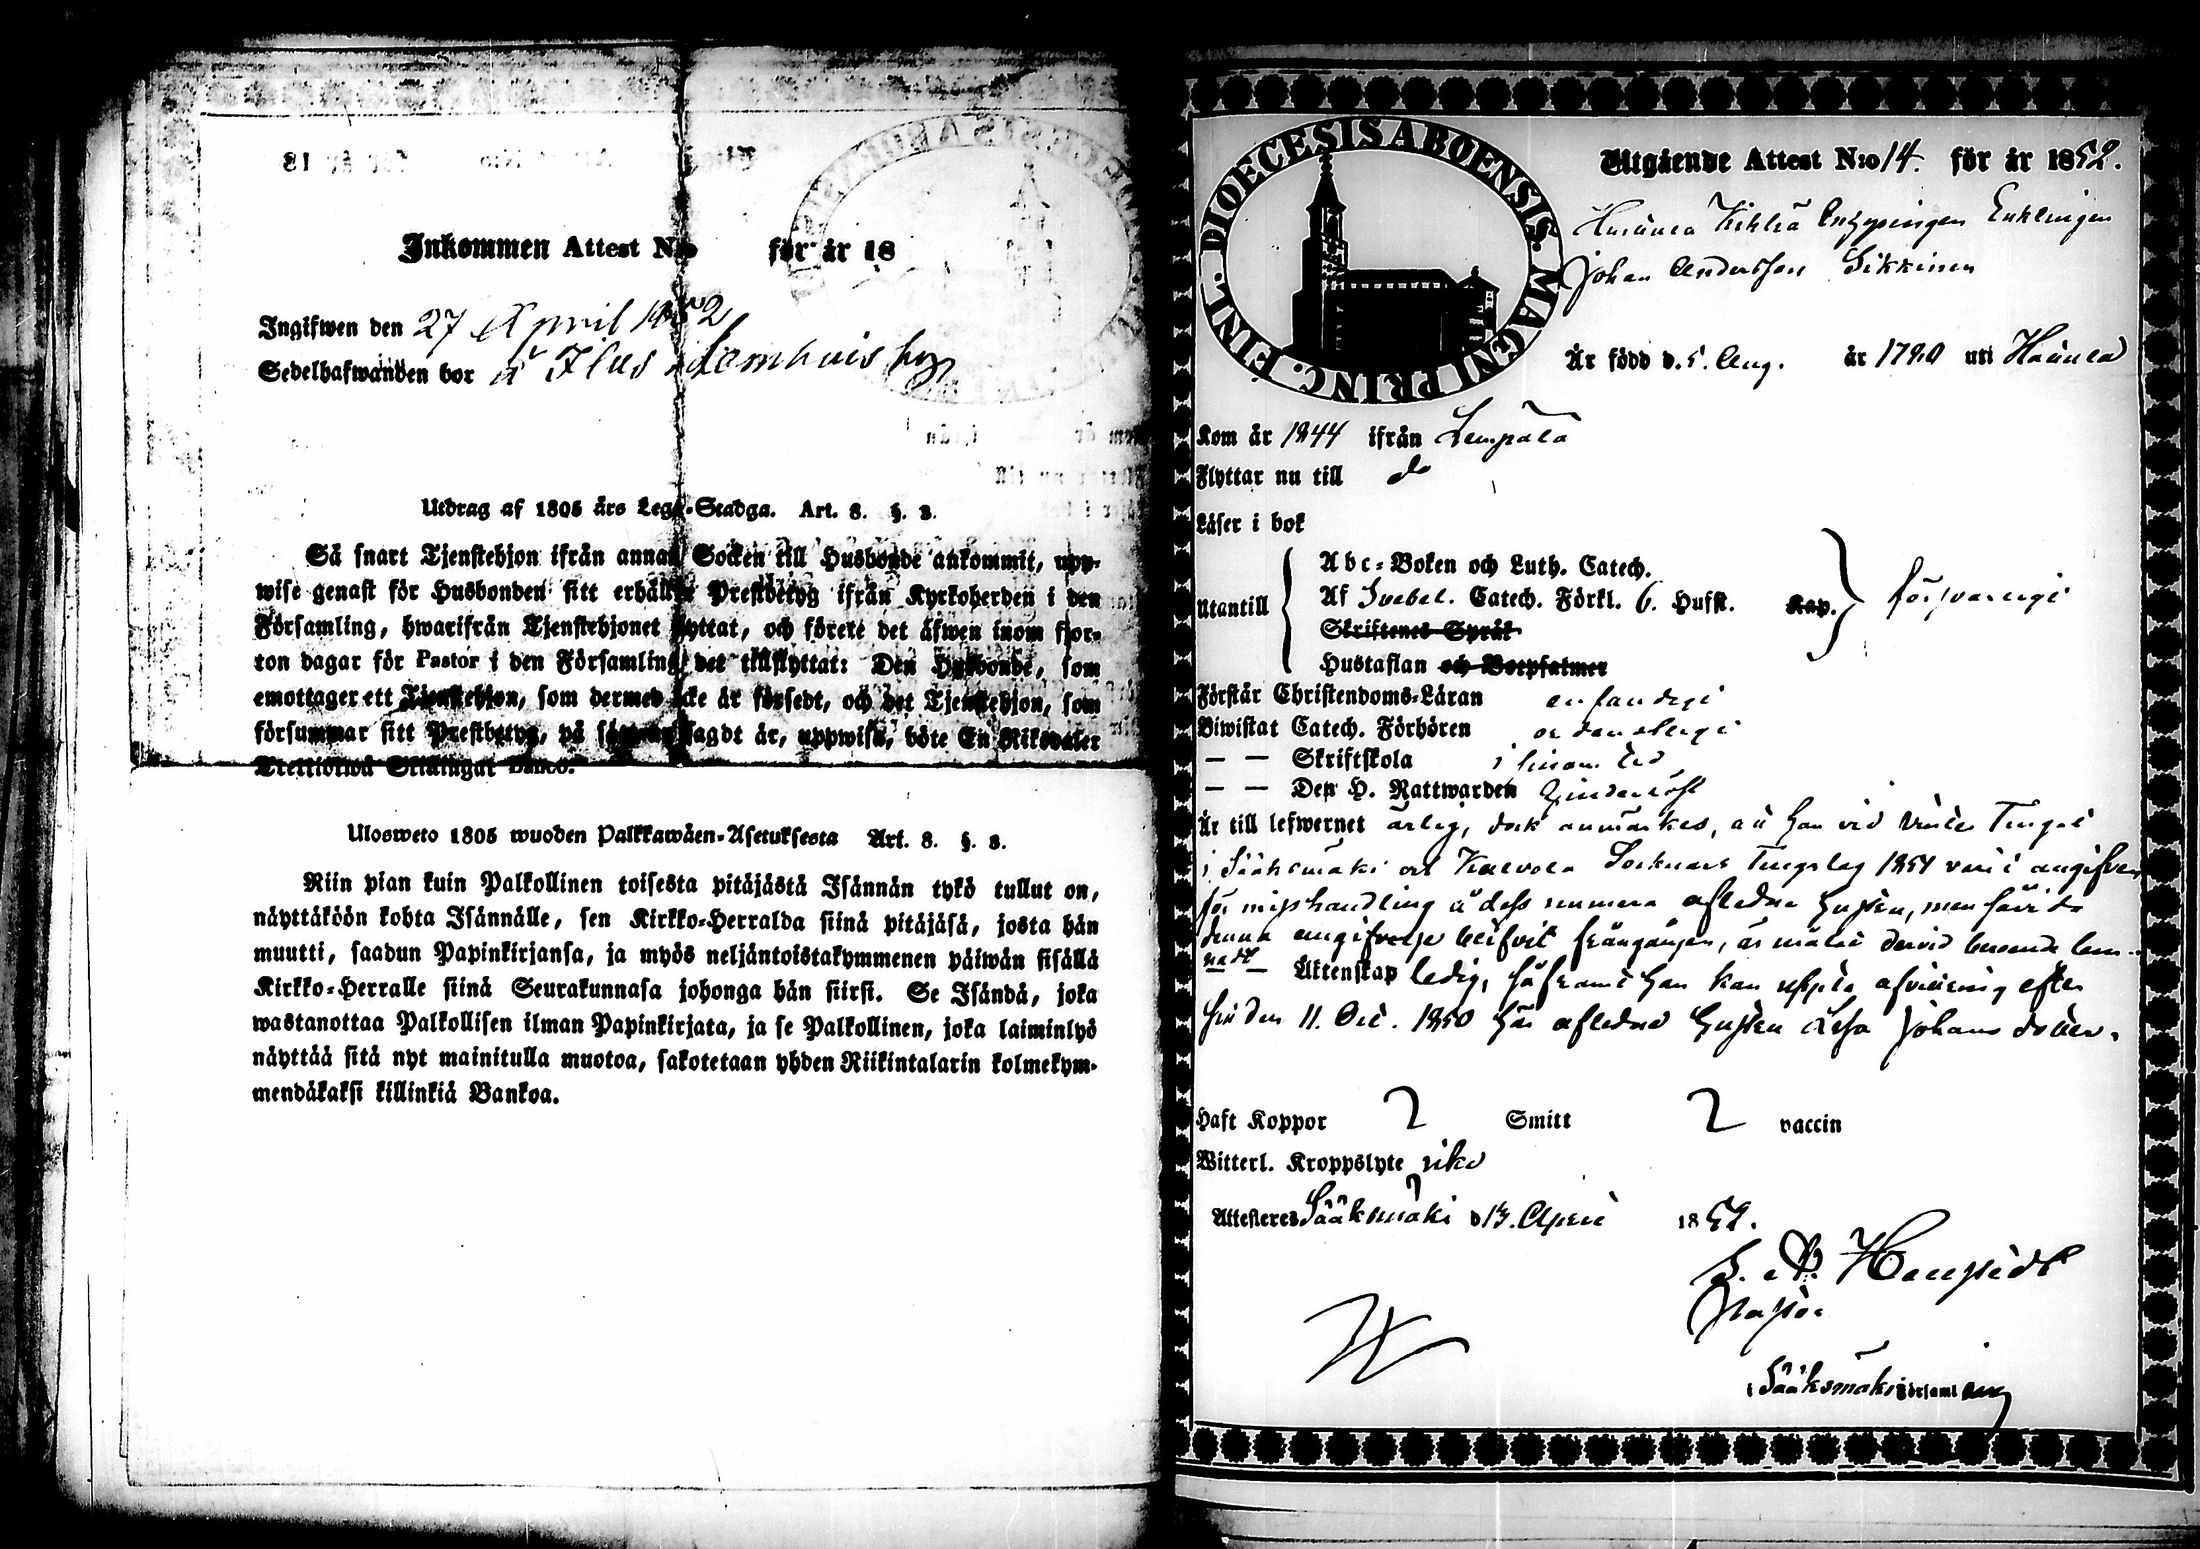 Inkommen Attest N:o för år 18
Ingifwen den 27 April 1852
Sedelhafwanden bor å Ilus Lemhuis by
Utdrag af 1805 års Lego-Stadga. Art. 8. §. 3.
Så snart Tjenstehjon ifrån annan Socken till Husbonde ankommit, upp-
wise genast för Husbonden sitt erhållne Prestbetyg ifrån Kyrkoherden i den
Församling, hwarifrån Tjenstehjonet flyttat, och förete det äfwen inom fjor-
ton dagar för Pastor i den Församling det tillflyttat: Den Husbonde, som
emottager ett Tjenstehjon, som dermed icke är försedt, och det Tjenstehjon, som
försummar sitt Prestbetyg, på sätt nu sagdt är, uppwisa, böte En Riksdaler
Trettiotwå Skillingar Banco.
Ulosweto 1805 wuoden Palkkawäen-Asetuksesta Art. 8. §. 3.
Niin pian kuin Palkollinen toisesta pitäjästä Isännän tykö tullut on,
näyttäköön kohta Isännälle, sen Kirkko-Herralda siinä pitäjäsä, josta hän
muutti, saadun Papinkirjansa, ja myös neljäntoistakymmenen päiwän sisällä
Kirkko-Herralle siinä Seurakunnasa johonga hän siirsi. Se Isändä, joka
wastanottaa Palkollisen ilman Papinkirjata, ja se Palkollinen, joka laiminlyö
näyttää sitä nyt mainitulla muotoa, sakotetaan yhden Riikintalarin kolmekym-
mendäkaksi killinkiä Bankoa.
DIOECESIS ABOENSIS. MAGNI PRINC. FINL.
Utgående Attest N:o 14. för år 1852.
Enklingen
Johan Andersson Sikkinen
Är född d. 5. Aug. år 1780 uti
Kom år 1844 ifrån Lempälä
Flyttar nu till do
Läser i bok
Utantill
Abc-Boken och Luth. Catech.
Af Svebel. Catech. Förkl. 6. Hufst. Kap. försvarligt
Skriftenes Språk
Hustaflan och Botpsalmer
Förstår Christendoms-Läran enfaldigt
Biwistat Catech. Förhören ordentligt
— — Skriftskola i sinom tid
— — Den H. Nattwarden
Är till lefwernet ärlig, dock anmärkes, att han vid Vinter Tinget
i Sääksmäki och Kalvola Socknars Tingslag 1851 varit angifven
för misshandling å dess numera aflidna hustru, men
denna angifvelse blifvit
Äktenskap ledig, såframt han kan uppte afvittring efter
sin den 11. Dec. 1850 här aflidna hustru Lisa Johans dotter.
Haft Koppor ? Smitt ? vaccin
Witterl. Kroppslyte icke
Attesteres Sääksmäki d 13. April 1852.
Pastor
i Sääksmäki Församling